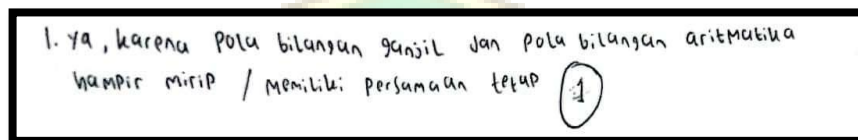 1. ya, karena pola bilangan ganjil dan pola bilangan aritmatika
hampir mirip / memiliki persamaan tetap 1